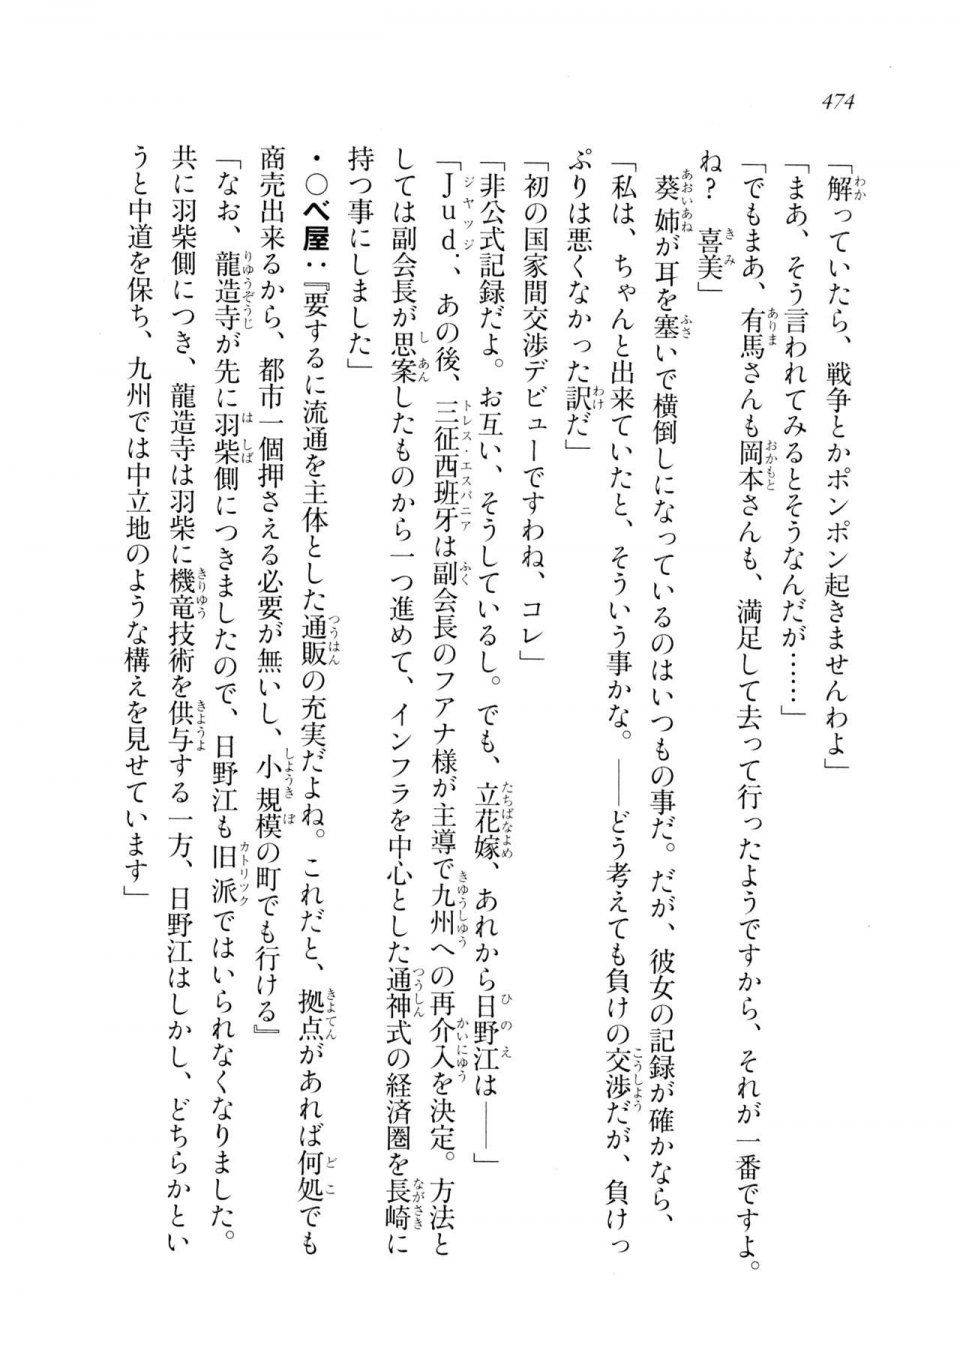 474
「解っていたら、戦争とかポンポン起きませんわよ」
「まあ、そう言われてみるとそうなんだが……」
「でもまあ、有馬さんも岡本さんも、満足して去って行ったようですから、それが一番ですよ。
ね？　喜美」
　葵姉が耳を塞いで横倒しになっているのはいつもの事だ。だが、彼女の記録が確かなら、
「私は、ちゃんと出来ていたと、そういう事かな。――どう考えても負けの交渉だが、負けっ
ぷりは悪くなかった訳だ」
「初の国家間交渉デビューですわね、コレ」
「非公式記録だよ。お互い、そうしているし。でも、立花嫁、あれから日野江は――」
「Ｊｕｄ．、あの後、三征西班牙は副会長のフアナ様が主導で九州への再介入を決定。方法と
しては副会長が思案したものから一つ進めて、インフラを中心とした通神式の経済圏を長崎に
持つ事にしました」
・○べ屋：『要するに流通を主体とした通販の充実だよね。これだと、拠点があれば何処でも
商売出来るから、都市一個押さえる必要が無いし、小規模の町でも行ける』
「なお、龍造寺が先に羽柴側につきましたので、日野江も旧派ではいられなくなりました。
共に羽柴側につき、龍造寺は羽柴に機竜技術を供与する一方、日野江はしかし、どちらかとい
うと中道を保ち、九州では中立地のような構えを見せています」